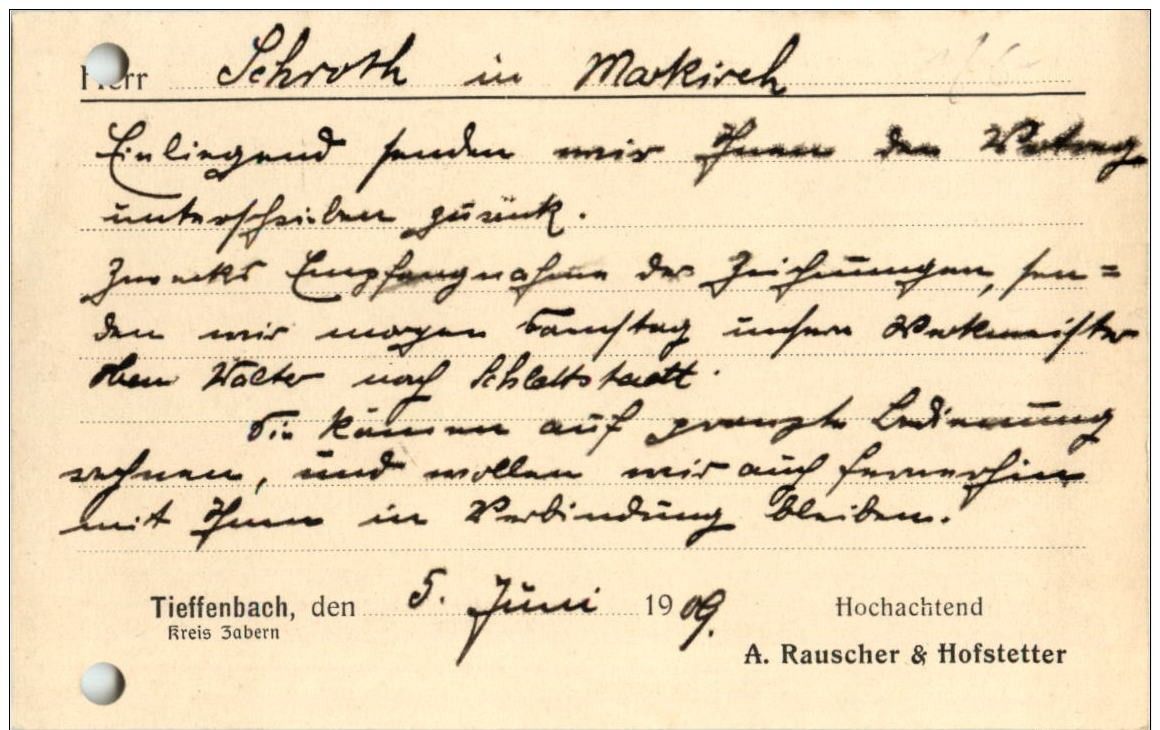 Herr Schroth in Markirch
Einliegend senden wir Ihnen den Vertrag
unterschrieben zurück.
Zwecks Empfangnahme der Zeichnungen, sen=
den wir morgen Samstag unsern Werkmeister
Walter nach Schlettstadt.
Sie können auf prompte Bedienung
rechnen, und wollen wir auch fernerhin
mit Ihnen in Verbindung bleiben.
Tieffenbach, den 5. Juni 1909.
Kreis Zabern
Hochachtend
A. Rauscher & Hofstetter